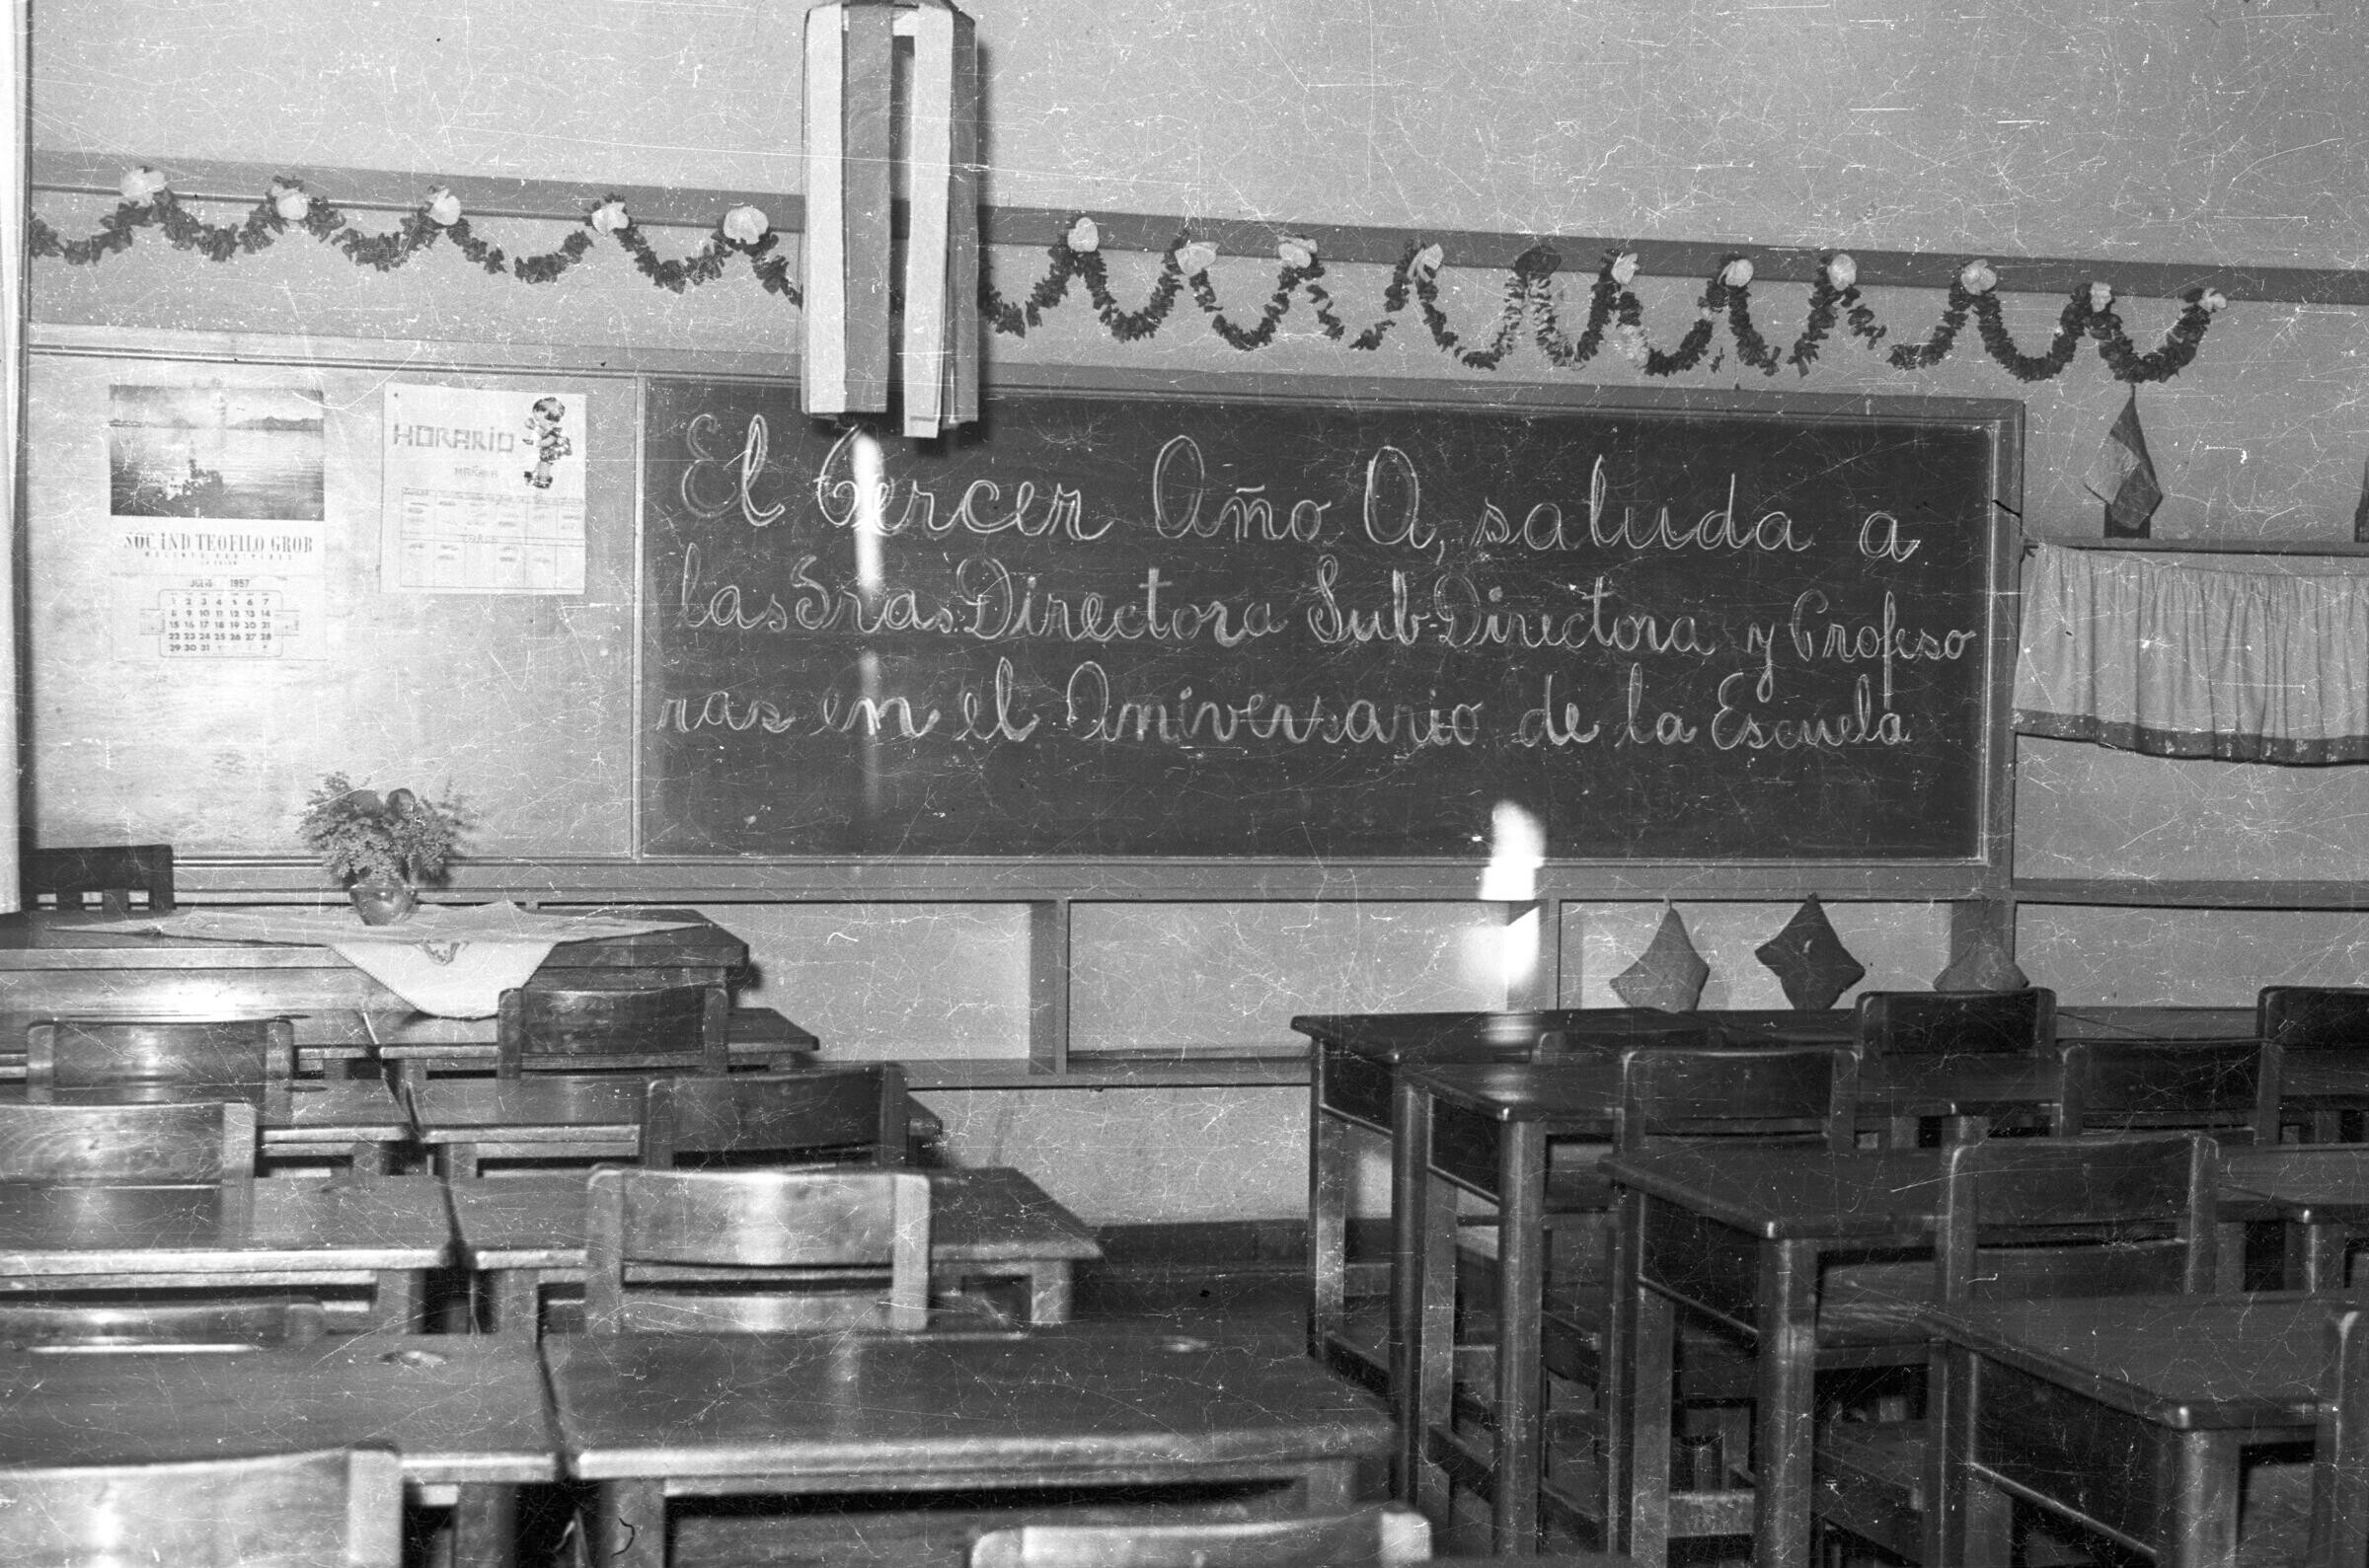 El Tercer Año A, saluda a
las Sras. Directora Sub-Directora y Profeso
ras en el Aniversario de la Escuela
SOC IND TEOFILO GROB
LA UNION
JULIO 1957
1 2 3 4 5 6 7
8 9 10 11 12 13 14
15 16 17 18 19 20 21
22 23 24 25 26 27 28
29 30 31
HORARIO
MAÑANA
TARDE